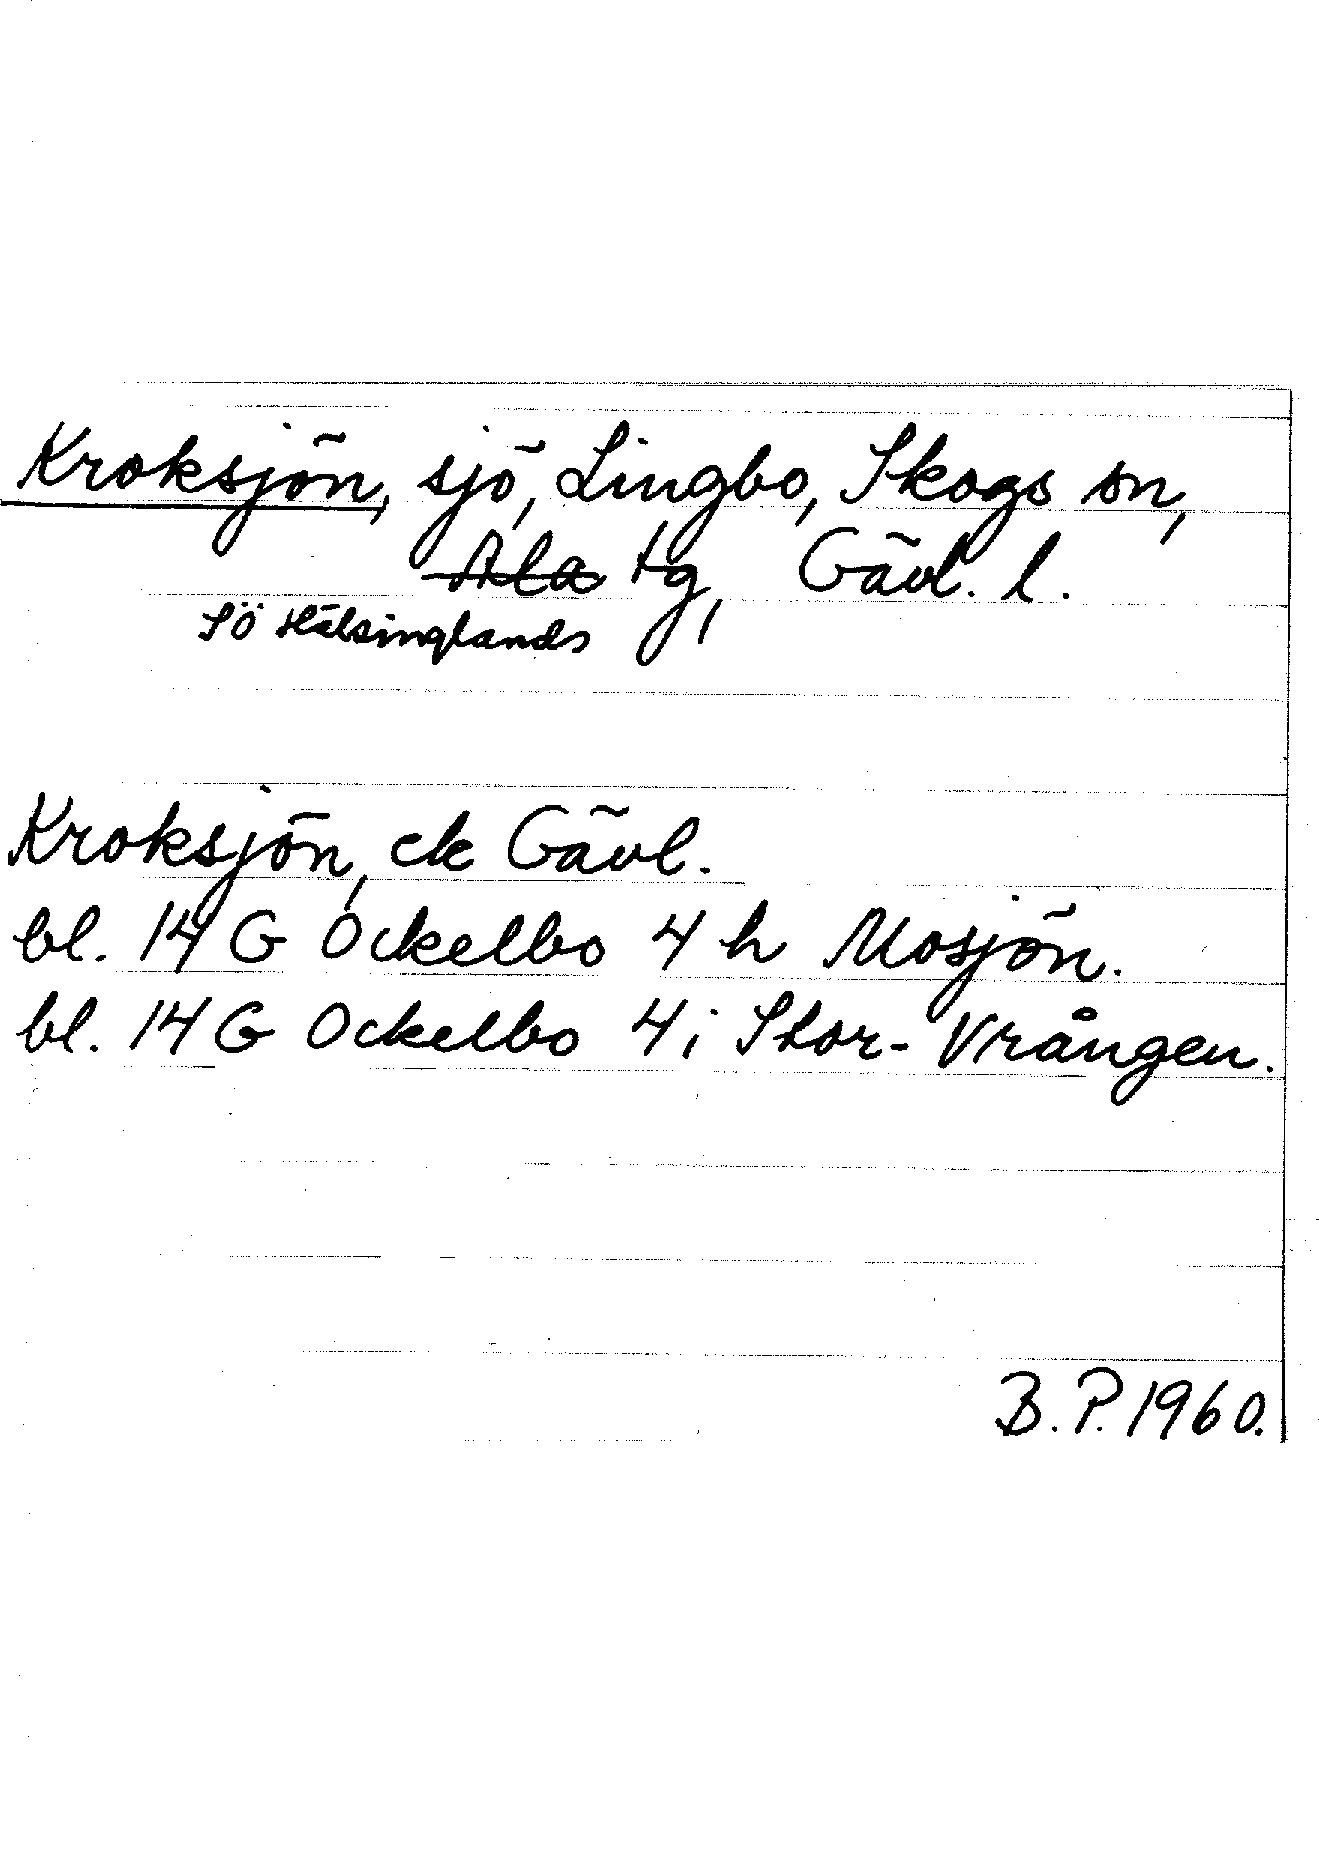 Kroksjön, sjö, Lingbo, Skogs sn,
Ala tg, Gävl. l.
Sö Hälsinglands
Kroksjön, ek Gävl.
bl. 14 G Ockelbo 4 h Mosjön.
bl. 14 G Ockelbo 4 i Stor-Vrången.
B.P. 1960.